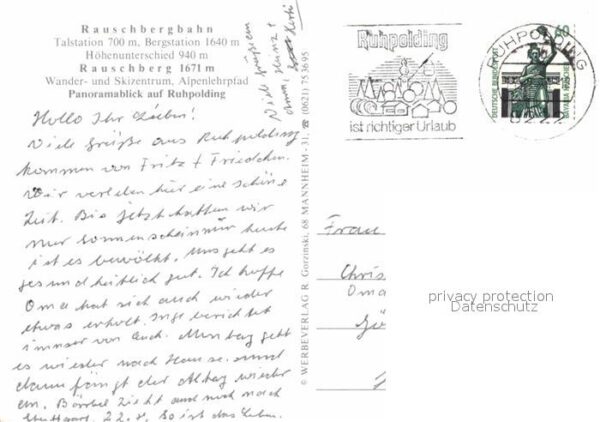 Rauschbergbahn
Talstation 700 m, Bergstation 1640 m
Höhenunterschied 940 m
Rauschberg 1671 m
Wander- und Skizentrum, Alpenlehrpfad
Panoramablick auf Ruhpolding
Hallo Ihr Lieben!
Viele Grüße aus Ruhpolding
kommen von Fritz + Friedchen.
Wir verleben hier eine schöne
Zeit. Bis jetzt hatten wir
nur Sonnenschein nur heute
ist es bewölkt. Uns geht es
gesundheitlich gut. Ich hoffe
Oma hat sich auch wieder
etwas erholt. Inge berichtet
immer von Euch. Montag geht
es wieder nach Hause und
dann fängt der Alltag wieder
an. Bärbel zieht auch noch nach
Stuttgart. So ist das Leben.
Viele Grüße an
Heinz +
Oma,
© WERBEVERLAG R. Gorzinski, 68 MANNHEIM - 31, ☎ (0621) 753695
Ruhpolding
ist richtiger Urlaub
RUHPOLDING
8222
60
DEUTSCHE BUNDESPOST
BAVARIA MÜNCHEN
Frau
Chris
Oma
privacy protection
Datenschutz